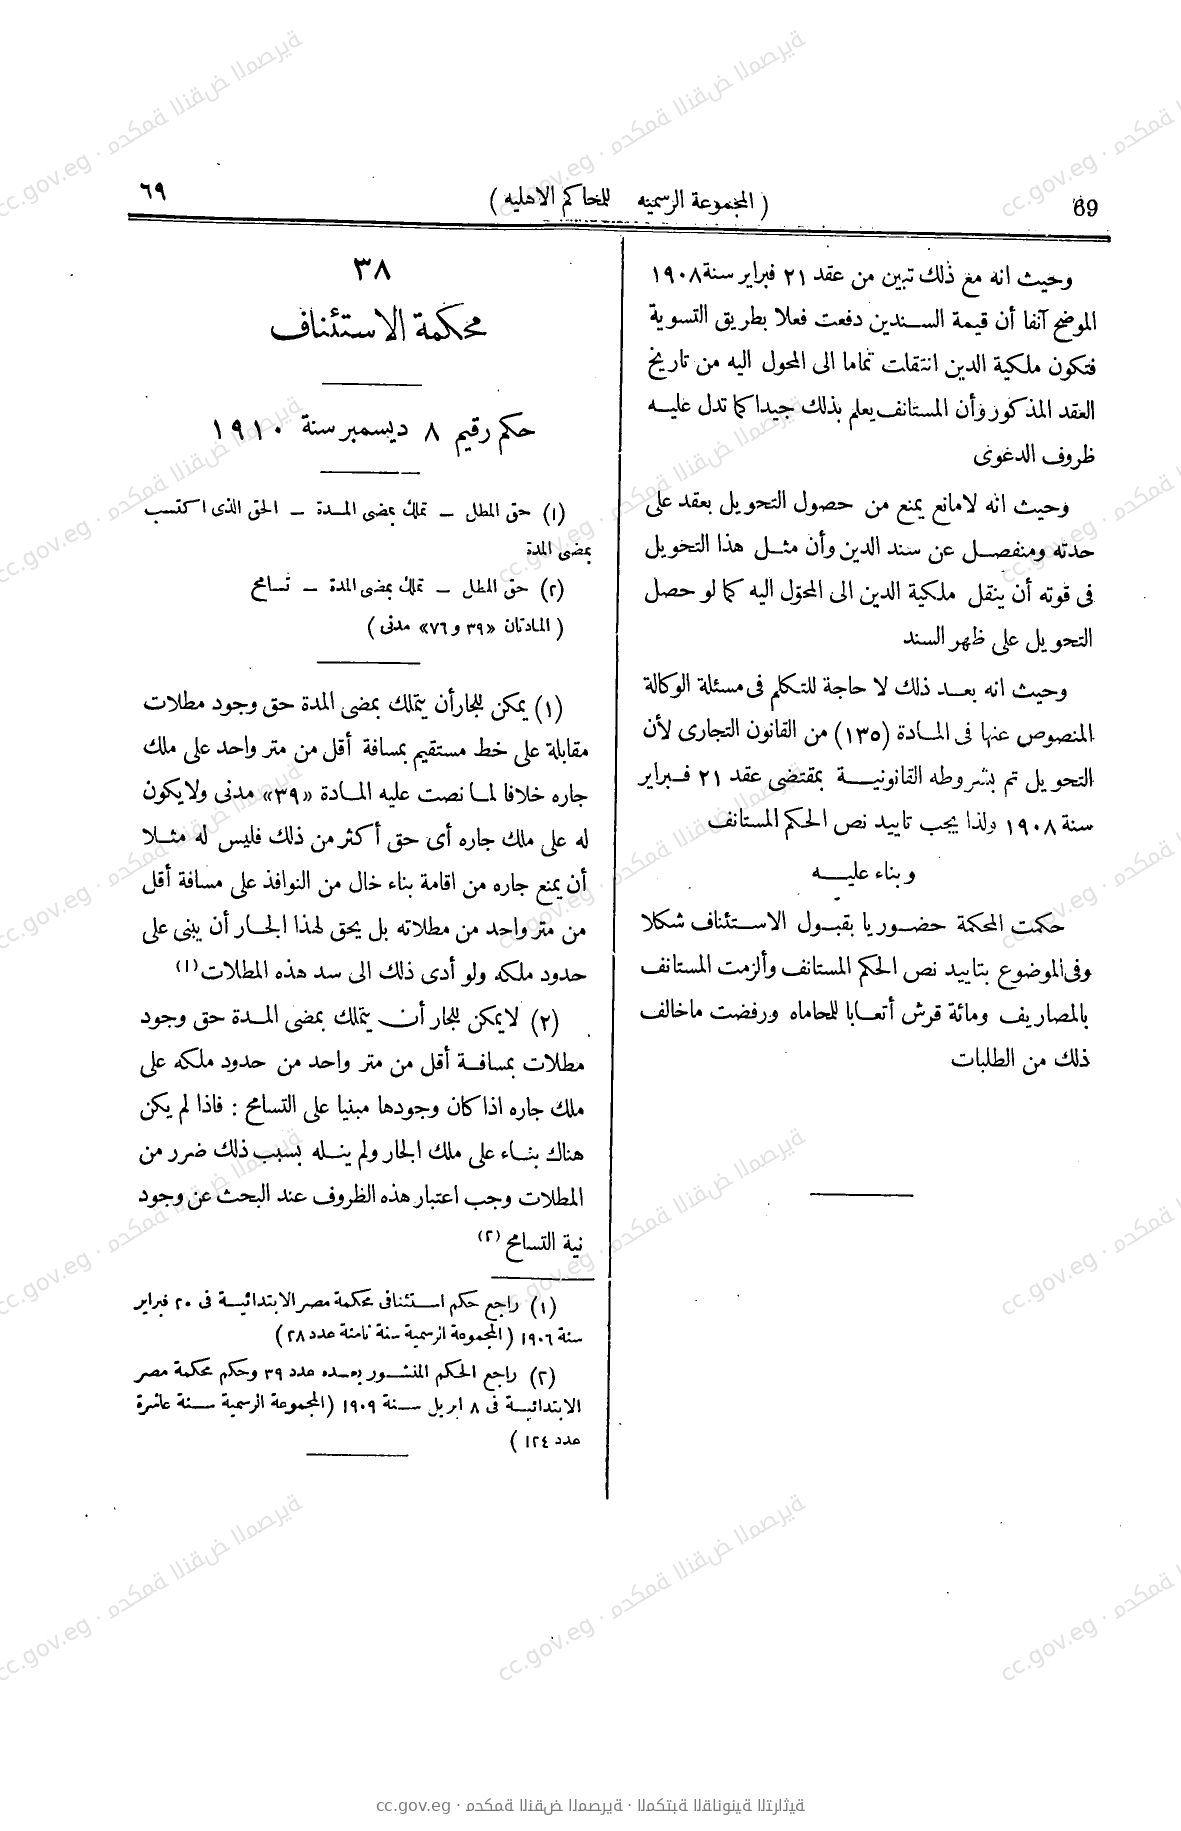 69
( المجموعة الرسميه للمحاكم الاهليه )
٦٩
وحيث انه مع ذلك تبين من عقد ٢١ فبراير سنة ١٩٠٨
الموضح آنفا أن قيمة السندين دفعت فعلا بطريق التسوية
فتكون ملكية الدين انتقلت تماما الى المحول اليه من تاريخ
العقد المذكور وأن المستانف يعلم بذلك جيدا كما تدل عليه
ظروف الدعوى
وحيث انه لامانع يمنع من حصول التحويل بعقد على
حدته ومنفصل عن سند الدين وأن مثل هذا التحويل
فى قوته أن ينقل ملكية الدين الى المحوّل اليه كما لو حصل
التحويل على ظهر السند
وحيث انه بعد ذلك لا حاجة للتكلم فى مسئلة الوكالة
المنصوص عنها فى المادة (١٣٥) من القانون التجارى لأن
التحويل تم بشروطه القانونية بمقتضى عقد ٢١ فبراير
سنة ١٩٠٨ ولذا يجب تاييد نص الحكم المستانف
وبناء عليه
حكمت المحكمة حضوريا بقبول الاستئناف شكلا
وفى الموضوع بتاييد نص الحكم المستانف وألزمت المستانف
بالمصاريف ومائة قرش أتعابا للمحاماه ورفضت ماخالف
ذلك من الطلبات
٣٨
محكمة الاستئناف
حكم رقيم ٨ ديسمبر سنة ١٩١٠
(١) حق المطل – تملك بمضى المدة – الحق الذى اكتسب
بمضى المدة
(٢) حق المطل – تملك بمضى المدة – تسامح
( المادتان «٣٩ و٧٦» مدنى )
(١) يمكن للجار أن يتملك بمضى المدة حق وجود مطلات
مقابلة على خط مستقيم بمسافة أقل من متر واحد على ملك
جاره خلافا لما نصت عليه المادة «٣٩» مدنى ولا يكون
له على ملك جاره أى حق أكثر من ذلك فليس له مثلا
أن يمنع جاره من اقامة بناء خال من النوافذ على مسافة أقل
من متر واحد من مطلاته بل يحق لهذا الجار أن يبنى على
حدود ملكه ولو أدى ذلك الى سد هذه المطلات (١)
(٢) لا يمكن للجار أن يتملك بمضى المدة حق وجود
مطلات بمسافة أقل من متر واحد من حدود ملكه على
ملك جاره اذا كان وجودها مبنيا على التسامح : فاذا لم يكن
هناك بناء على ملك الجار ولم ينله بسبب ذلك ضرر من
المطلات وجب اعتبار هذه الظروف عند البحث عن وجود
نية التسامح (٢)
(١) راجع حكم استئنافى محكمة مصر الابتدائية فى ٢٠ فبراير
سنة ١٩٠٦ (المجموعة الرسمية سنة ثامنة عدد ٢٨)
(٢) راجع الحكم المنشور بعده عدد ٣٩ وحكم محكمة مصر
الابتدائية فى ٨ ابريل سنة ١٩٠٩ (المجموعة الرسمية سنة عاشرة
عدد ١٢٤ )
cc.gov.eg · محكمة النقض المصرية · المكتبة القانونية التراثية